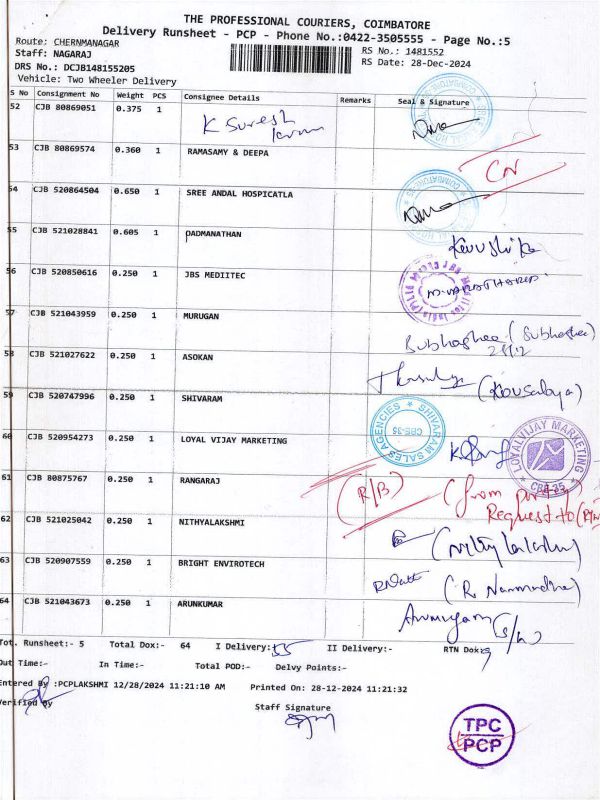 THE PROFESSIONAL COURIERS, COIMBATORE
Delivery Runsheet - PCP - Phone No.:0422-3505555 - Page No.:5
Route: CHERNMANAGAR RS No.: 1481552
Staff: NAGARAJ RS Date: 28-Dec-2024
DRS No.: DCJB148155205
Vehicle: Two Wheeler Delivery
S No Consignment No Weight PCS Consignee Details Remarks Seal & Signature
52 CJB 80869051 0.375 1 K Suresh
53 CJB 80869574 0.360 1 RAMASAMY & DEEPA CN
54 CJB 520864504 0.650 1 SREE ANDAL HOSPICATLA COIMBATORE
55 CJB 521028841 0.605 1 PADMANATHAN Kavushika
56 CJB 520850616 0.250 1 JBS MEDIITEC
57 CJB 521043959 0.250 1 MURUGAN Subhashee (Subhashee)
28/12
58 CJB 521027622 0.250 1 ASOKAN (Kousalya)
59 CJB 520747996 0.250 1 SHIVARAM SHIVARAM SALES AGENCIES CBE-35
60 CJB 520954273 0.250 1 LOYAL VIJAY MARKETING LOYALVIJAY MARKETING CBE-35
61 CJB 80875767 0.250 1 RANGARAJ (R/B) (from party
Request to
62 CJB 521025042 0.250 1 NITHYALAKSHMI (Nithyalakshmi)
63 CJB 520907559 0.250 1 BRIGHT ENVIROTECH
64 CJB 521043673 0.250 1 ARUNKUMAR Arumugam (S/W)
Tot. Runsheet:- 5 Total Dox:- 64 I Delivery:- 55 II Delivery:- RTN Dok:- 9
Out Time:- In Time:- Total POD:- Delvy Points:-
Entered By :PCPLAKSHMI 12/28/2024 11:21:10 AM Printed On: 28-12-2024 11:21:32
Verified By Staff Signature
TPC
PCP